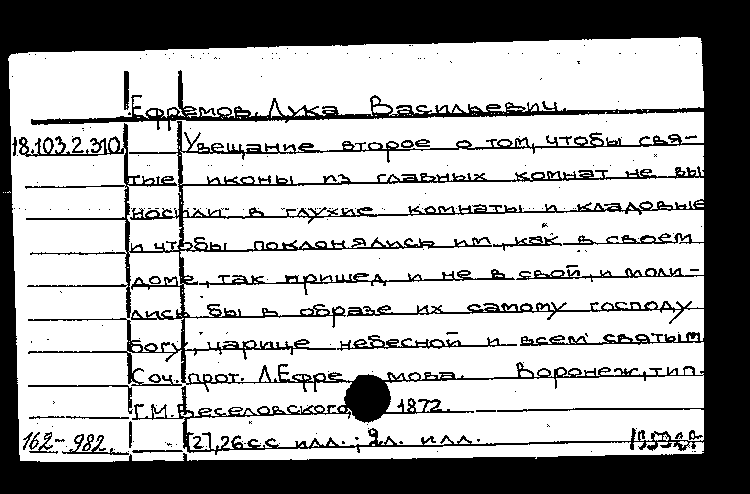 Ефремов, Лука Васильевич.
18.103.2.310. Увещание второе о том, чтобы свя-
тые иконы из главных комнат не вы
носили в глухие комнаты и кладовые
и чтобы поклонялись им, как в своем
доме, так пришед и не в свой, и моли-
лись бы в образе их самому господу
богу, царице небесной и всем святым.
Соч. прот. Л.Ефремова. Воронеж, тип.
Г.М.Веселовского, 1872.
162-982. [2], 26 с.с илл.; 2л. илл.